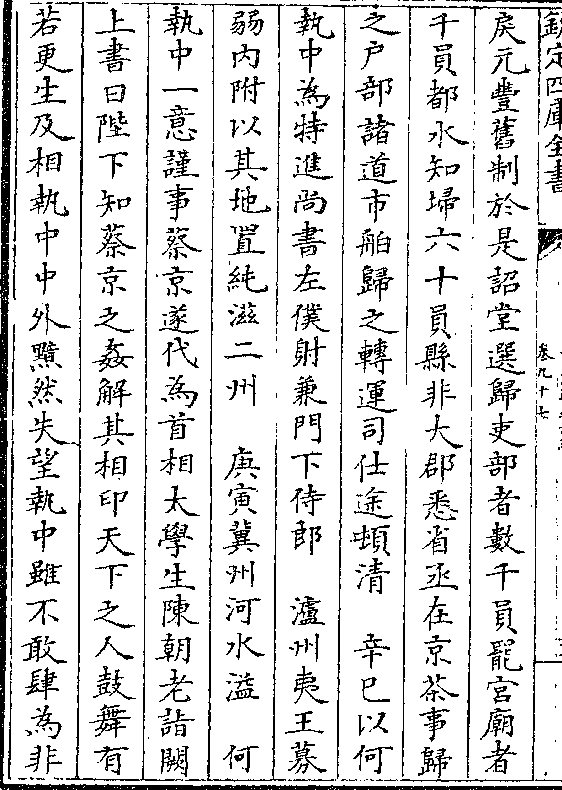 欽定四庫全書
卷九十七
戾元豐舊制於是詔堂選歸吏部者數千員罷宫廟者
千員都水知埽六十員縣非大郡悉省丞在京茶事歸
之户部諸道市舶歸之轉運司仕途頓清　辛巳以何
執中為特進尚書左僕射兼門下侍郎　瀘州夷王募
弱内附以其地置純滋二州　庚寅冀州河水溢　何
執中一意謹事蔡京遂代為首相太學生陳朝老詣闕
上書曰陛下知蔡京之姦解其相印天下之人鼓舞有
若更生及相執中中外黯然失望執中雖不敢肆為非